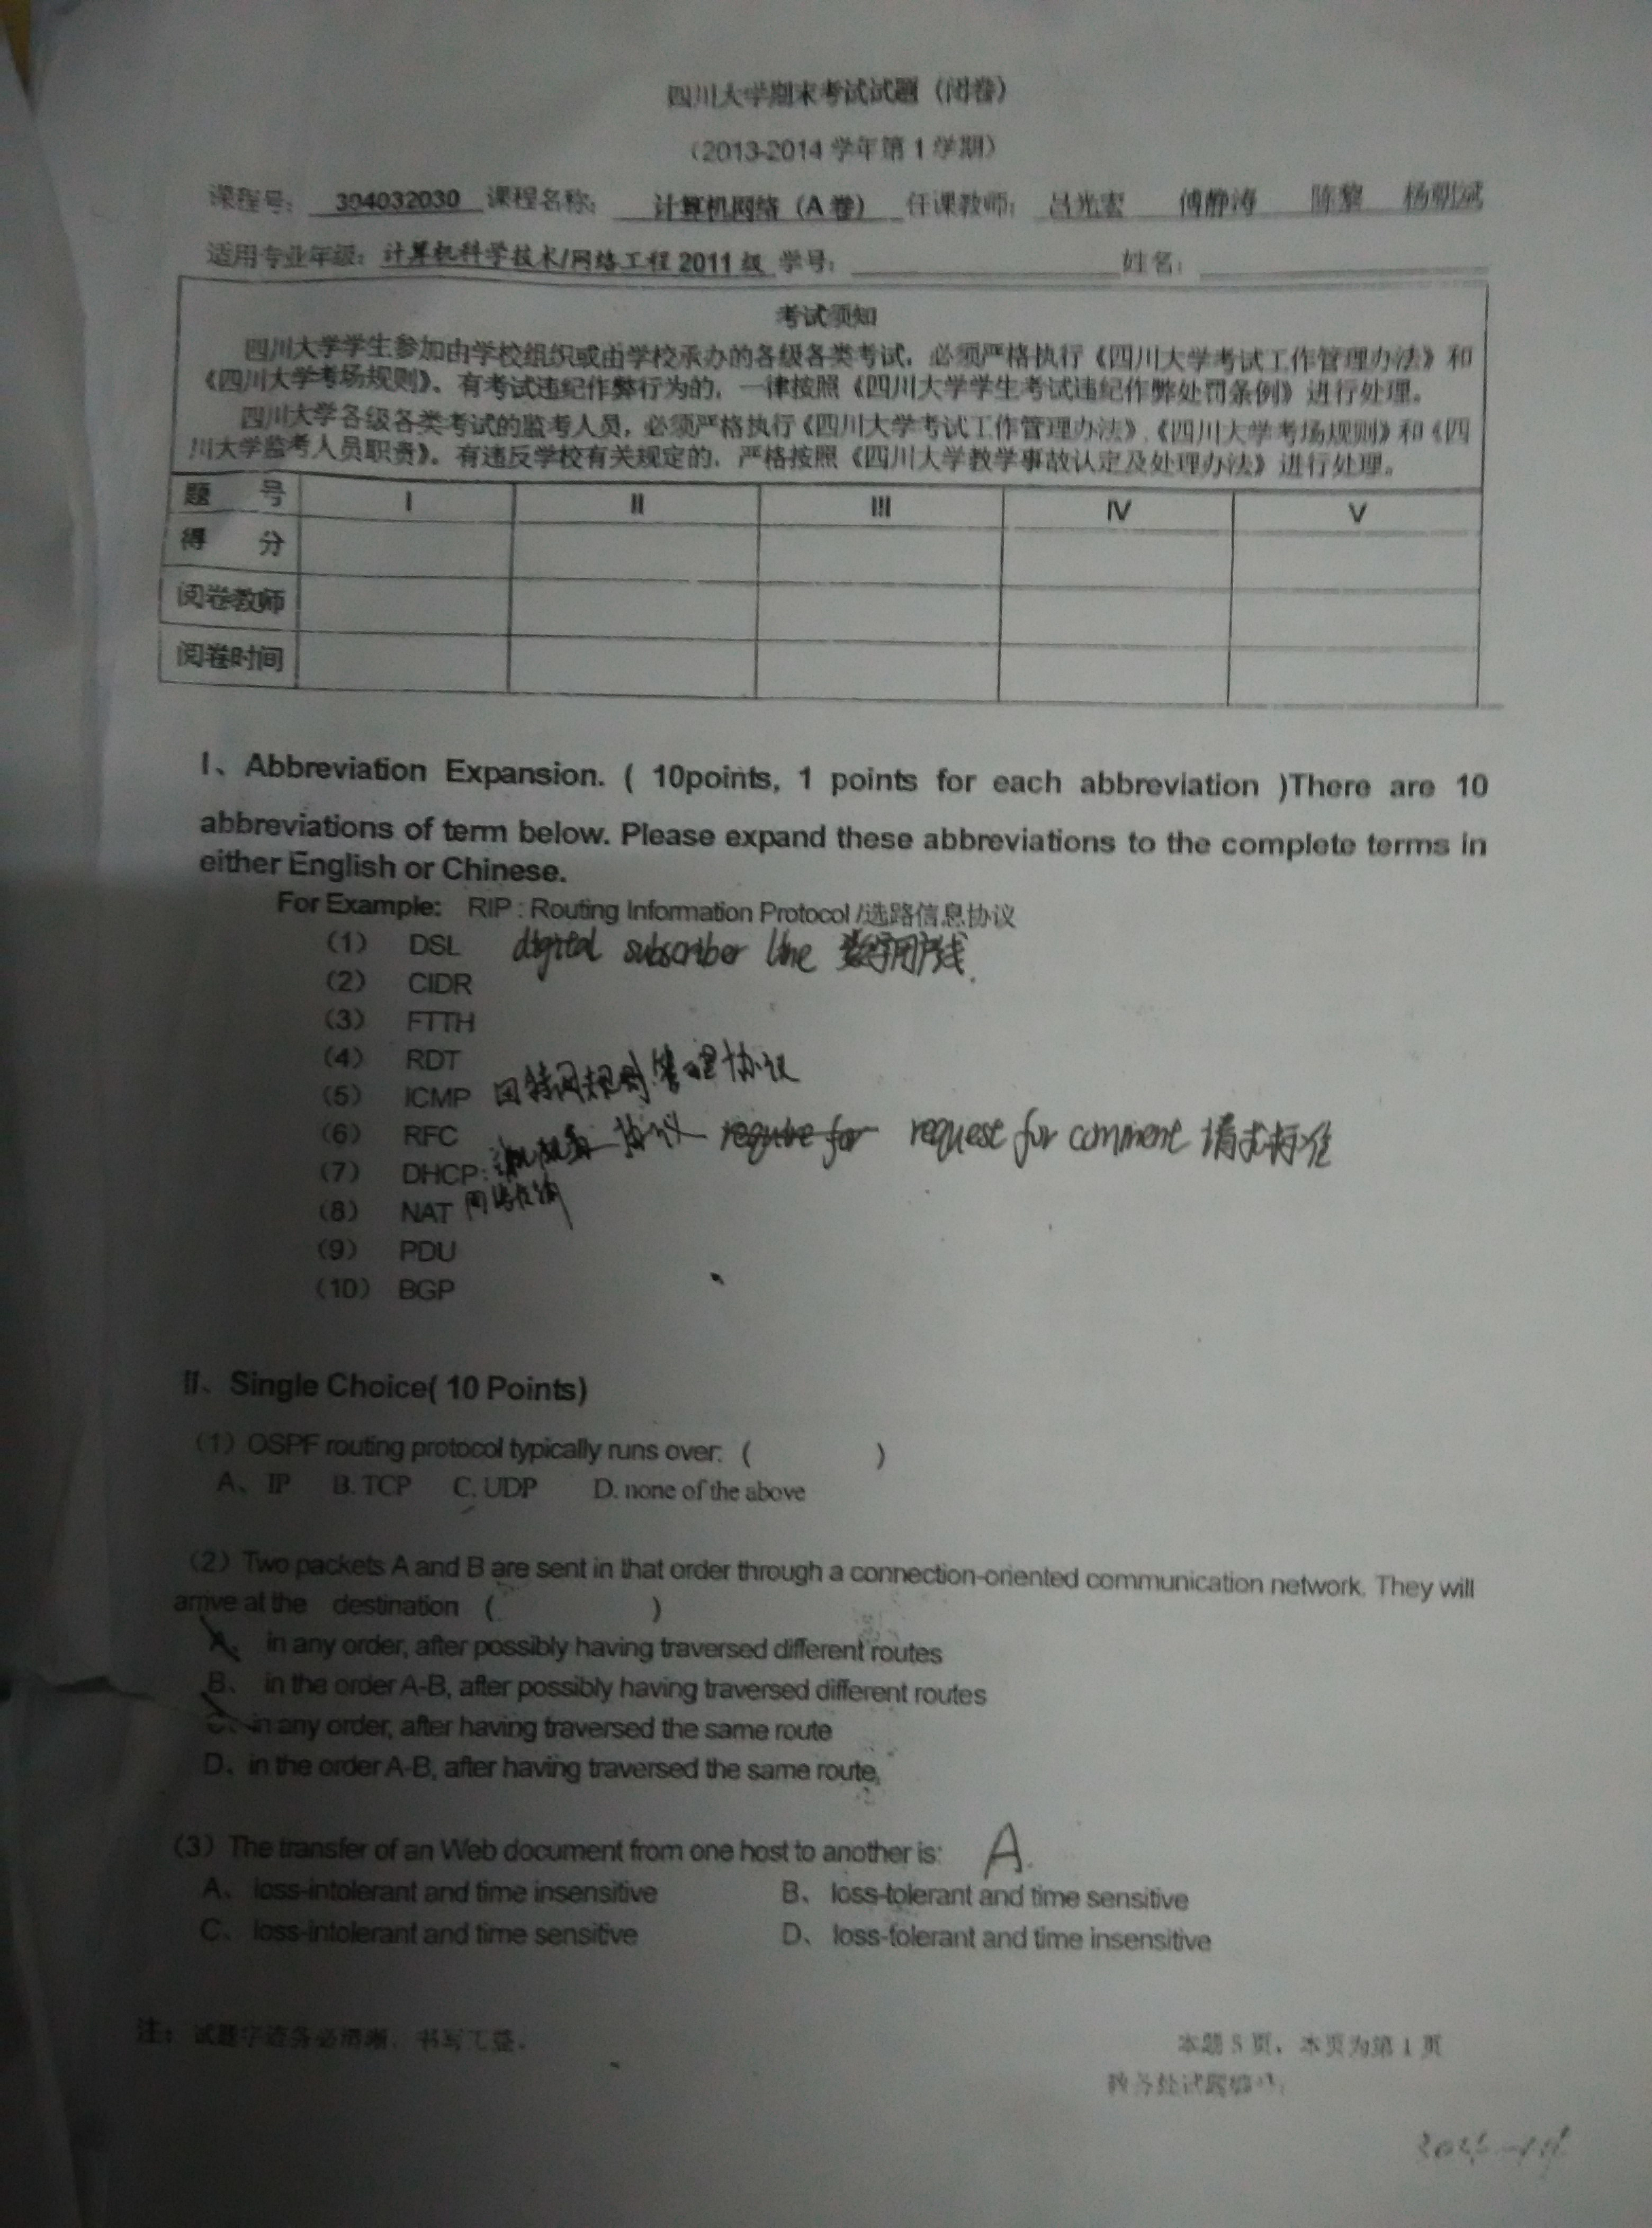 四川大学期末考试试题（闭卷）
（2013-2014 学年第 1 学期）
课程号： 304032030 课程名称： 计算机网络（A 卷） 任课教师： 吕光宏 傅静涛 陈黎 杨朝斌
适用专业年级：计算机科学技术/网络工程 2011 级 学号： 姓名：
考试须知
四川大学学生参加由学校组织或由学校承办的各级各类考试，必须严格执行《四川大学考试工作管理办法》和
《四川大学考场规则》。有考试违纪作弊行为的，一律按照《四川大学学生考试违纪作弊处罚条例》进行处理。
四川大学各级各类考试的监考人员，必须严格执行《四川大学考试工作管理办法》、《四川大学考场规则》和《四
川大学监考人员职责》。有违反学校有关规定的，严格按照《四川大学教学事故认定及处理办法》进行处理。
题 号 I II III IV V
得 分
阅卷教师
阅卷时间
I、Abbreviation Expansion. ( 10points, 1 points for each abbreviation )There are 10
abbreviations of term below. Please expand these abbreviations to the complete terms in
either English or Chinese.
For Example: RIP : Routing Information Protocol /选路信息协议
（1） DSL digital subscriber line 数字用户线.
（2） CIDR
（3） FTTH
（4） RDT
（5） ICMP 因特网规则管理协议
（6） RFC require for request for comment 请求标准
（7） DHCP: 协议
（8） NAT 网络
（9） PDU
（10） BGP
II、Single Choice( 10 Points)
（1）OSPF routing protocol typically runs over:（ ）
A、IP B. TCP C. UDP D. none of the above
（2）Two packets A and B are sent in that order through a connection-oriented communication network. They will
arrive at the destination （ ）
A、 in any order, after possibly having traversed different routes
B、 in the order A-B, after possibly having traversed different routes
C、in any order, after having traversed the same route
D、in the order A-B, after having traversed the same route,
（3）The transfer of an Web document from one host to another is: A.
A、 loss-intolerant and time insensitive B、 loss-tolerant and time sensitive
C、 loss-intolerant and time sensitive D、 loss-tolerant and time insensitive
注：试题字迹务必清晰，书写工整。 本题 5 页，本页为第 1 页
教务处试题编号：